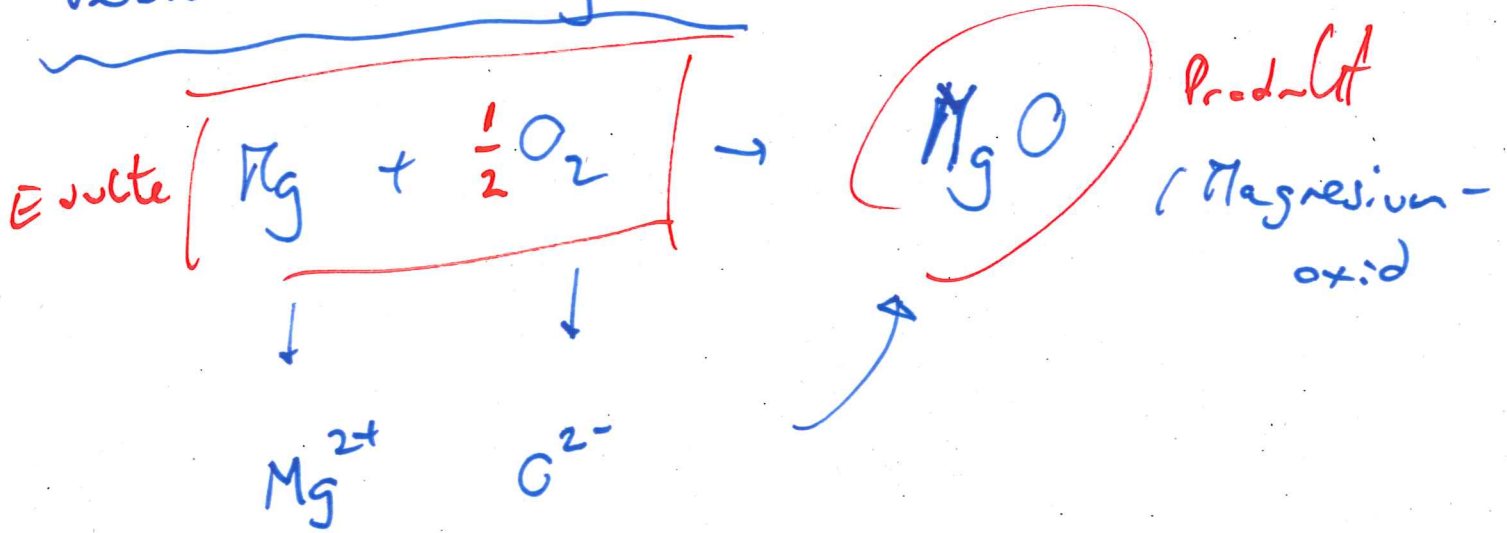 Edukte Mg + 1/2 O₂ → MgO Produkt
(Magnesium-
oxid
Mg²⁺ O²⁻